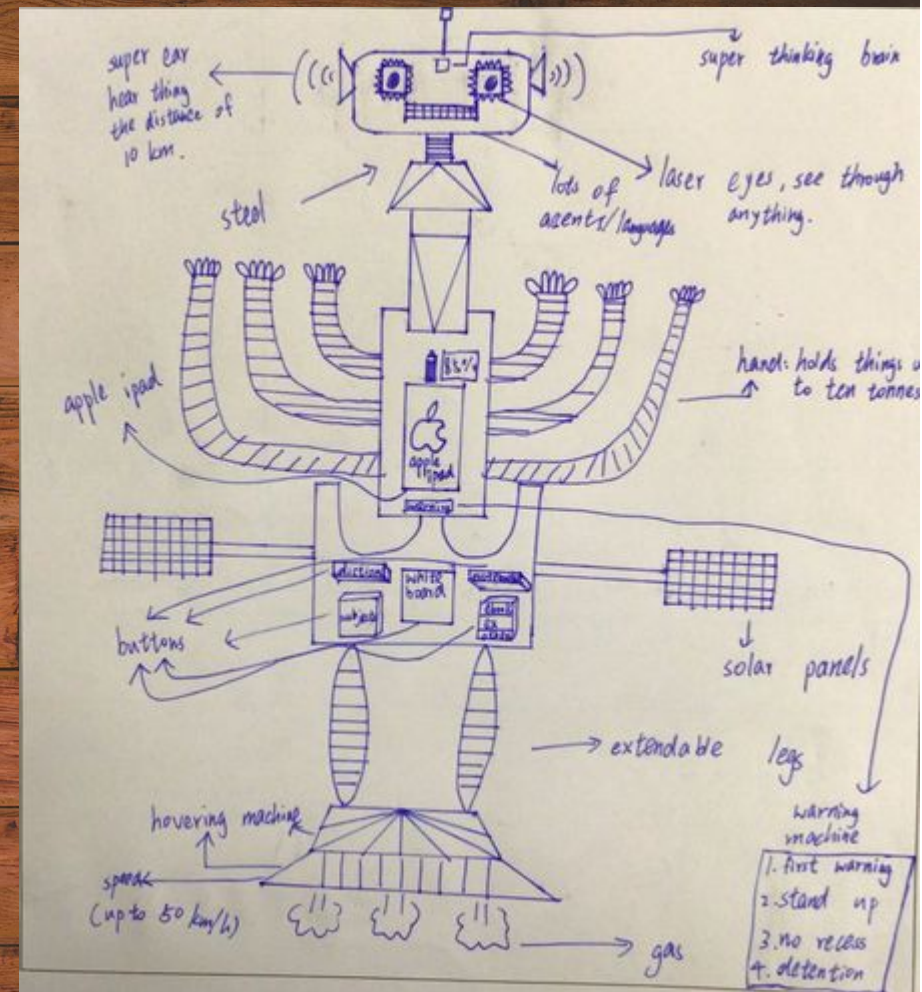 super ear
hear thing
the distance of
10 km.
super thinking brain
steel
lots of
asents/languages
laser eyes, see through
anything.
85%
apple
ipad
apple ipad
hand: holds things u
to ten tonnes
warning
diction
white
board
subject
buttons
solar panels
extendable legs
hovering machine
speed
(up to 50 km/h)
gas
warning
machine
1. first warning
2. stand up
3. no recess
4. detention